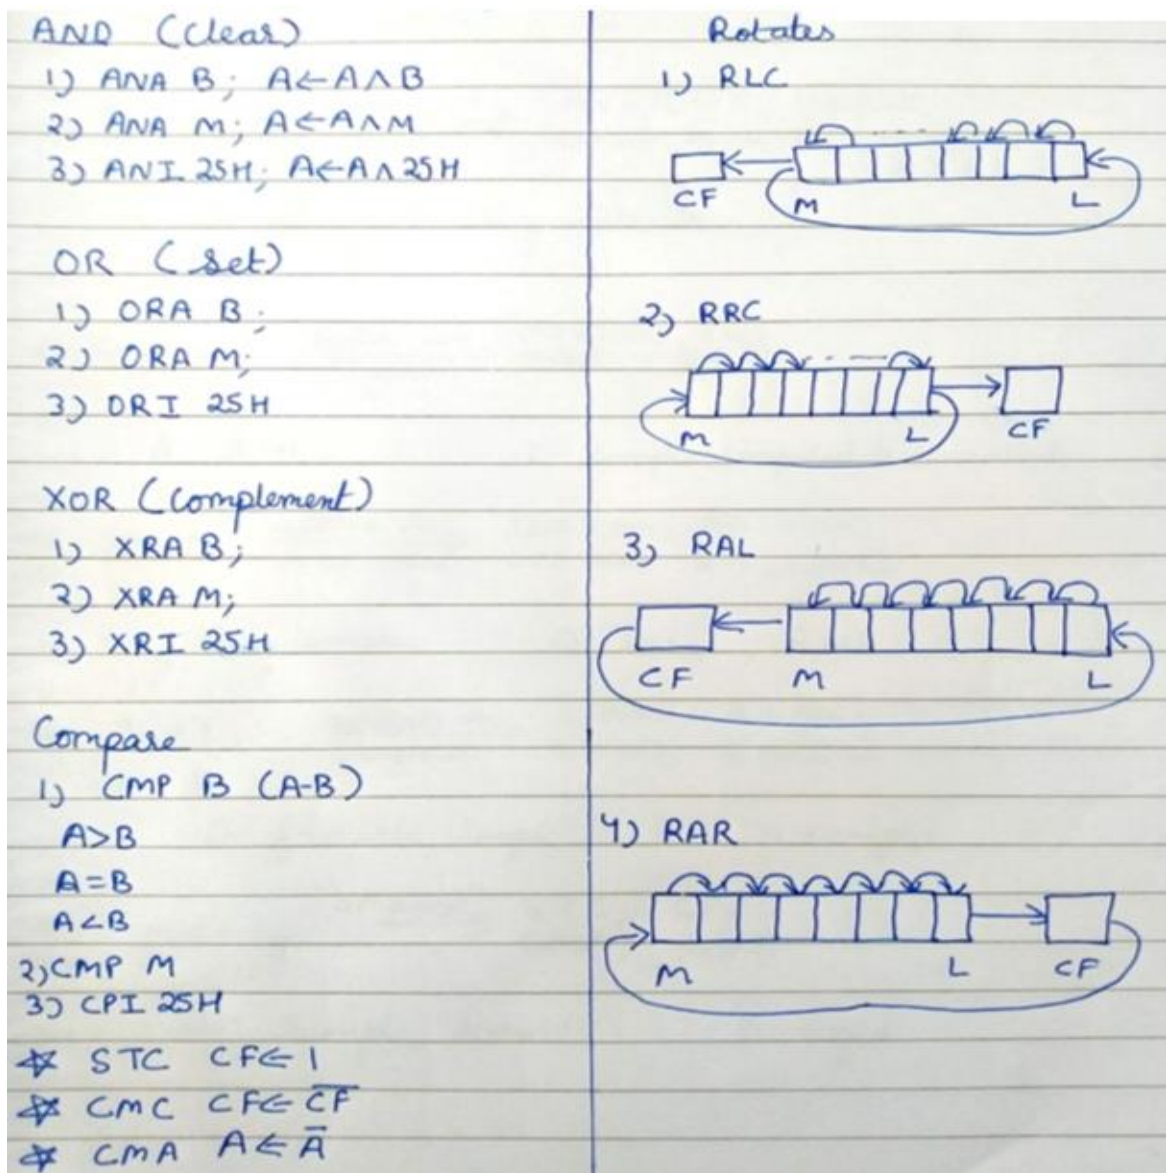 AND (Clear)
1) ANA B; A←A∧B
2) ANA M; A←A∧M
3) ANI 25H; A←A∧25H
OR (Set)
1) ORA B;
2) ORA M;
3) ORI 25H
XOR (Complement)
1) XRA B;
2) XRA M;
3) XRI 25H
Compare
1) CMP B (A-B)
A>B
A=B
A<B
2) CMP M
3) CPI 25H
☆ STC CF←1
☆ CMC CF←C̅F̅
☆ CMA A←A̅
Rotates
1) RLC
CF M L
2) RRC
M L CF
3) RAL
CF M L
4) RAR
M L CF